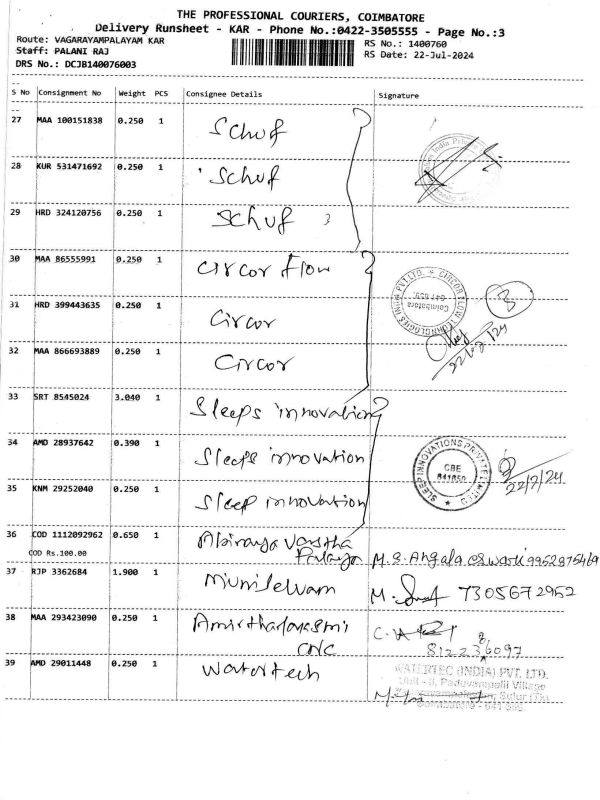 THE PROFESSIONAL COURIERS, COIMBATORE
Delivery Runsheet - KAR - Phone No.:0422-3505555 - Page No.:3
Route: VAGARAYAMPALAYAM KAR
RS No.: 1400760
Staff: PALANI RAJ
RS Date: 22-Jul-2024
DRS No.: DCJB140076003
S No Consignment No Weight PCS Consignee Details Signature
27 MAA 100151838 0.250 1 Schuf
28 KUR 531471692 0.250 1 Schuf
29 HRD 324120756 0.250 1 Schuf 3
30 MAA 86555991 0.250 1 Circor flow
CIRCOR FLOW TECHNOLOGIES INDIA PVT LTD.
Coimbatore
641 659.
3
31 HRD 399443635 0.250 1 Circor
22/7/24
32 MAA 866693889 0.250 1 Circor
33 SRT 8545024 3.040 1 Sleeps innovation
34 AMD 28937642 0.390 1 Sleeps innovation
SLEEP INNOVATIONS PRIVATE LIMITED
CBE
22/7/24
35 KNM 29252040 0.250 1 Sleep innovation
36 COD 1112092962 0.650 1 Abiraya
COD Rs.100.00
M.S. Angala eswari 9952975469
37 RJP 3362684 1.900 1 Muniselvam M. 7305672952
38 MAA 293423090 0.250 1
CNC
39 AMD 29011448 0.250 1 Watertech
WATERTEC (INDIA) PVT. LTD.
Unit - II, Paduvampalli Village
Sulur (Tk)